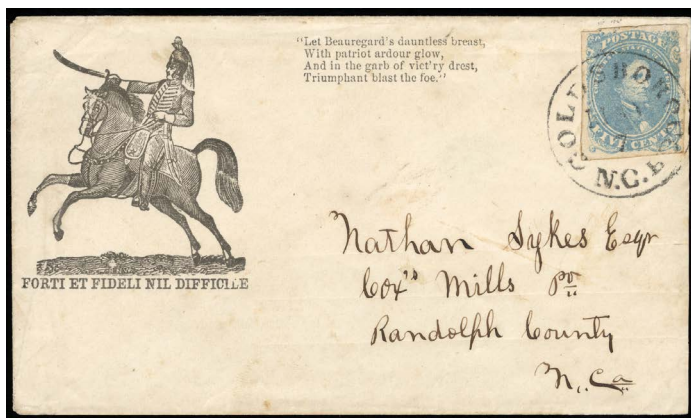 "Let Beauregard's dauntless breast,
With patriot ardour glow,
And in the garb of vict'ry drest,
Triumphant blast the foe."
POSTAGE
FIVE CENTS
GOLDSBOROUGH
7
N.C.
FORTI ET FIDELI NIL DIFFICILE
Nathan Sykes Esqr
Cox's Mills Po
Randolph County
N. Ca